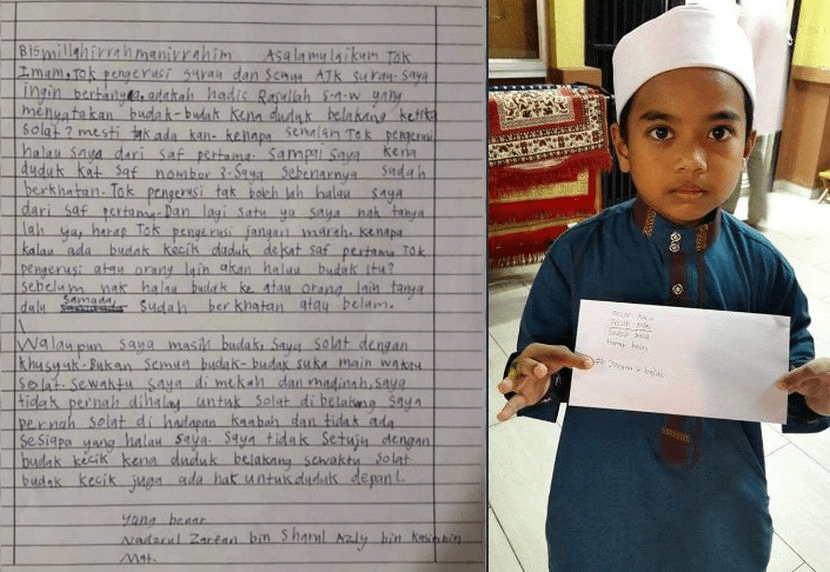 Bismillahirrahmanirrahim Asalamulaikum Tok
Imam, Tok pengerusi surau dan semua AJK surau. Saya
ingin bertanya, adakah hadis Rasullah s.a.w yang
menyatakan budak-budak kena duduk belakang ketika
solat? mesti tak ada kan. kenapa semalam Tok pengerusi
halau saya dari saf pertama. Sampai saya kena
duduk kat saf nombor 3. Saya sebenarnya sudah
berkhatan. Tok pengerusi tak boleh lah halau saya
dari saf pertama. Dan lagi satu ya saya nak tanya
lah ya, harap Tok pengerusi jangan marah. kenapa
kalau ada budak kecik duduk dekat saf pertama Tok
pengerusi atau orang lain akan halau budak itu?
sebelum nak halau budak ke atau orang lain tanya
dalu samada, sudah berkhatan atau belum.
Walaupun saya masih budak, saya solat dengan
khusyuk. Bukan semua budak-budak suka main waktu
solat. Sewaktu saya di mekah dan madinah, saya
tidak pernah dihalau untuk solat di belakang. Saya
pernah solat di hadapan kaabah dan tidak ada
sesiapa yang halau saya. Saya tidak setuju dengan
budak kecik kena duduk belakang sewaktu solat.
budak kecik juga ada hak untuk duduk depan!.
Yang benar
Nadzrul Zarfan bin Sharul Azly bin Kasim bin
Mat.
harap balas